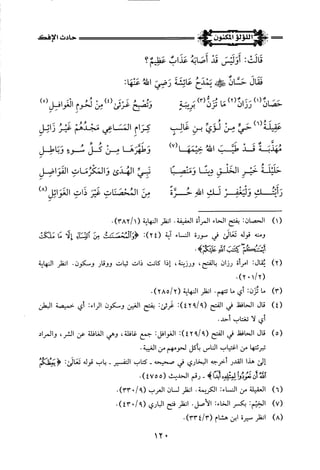 اللؤلؤ المكنون
حادث الإفك
قَالَتْ: أَوَلَيْسَ قَدْ أَصَابَهُ عَذَابٌ عَظِيمٌ؟
فَقَالَ حَسَّانُ ﷺ يَمْدَحُ عَائِشَةَ رَضِيَ اللهُ عَنْهَا:
حَصَانٌ(١) رَزَانٌ(٢) مَا تُزَنُّ(٣) بَرِيبَةٍ وَتُصْبِحُ غَرْثَى(٤) مِنْ لُحُومِ الْغَوَافِلِ(٥)
عَقِيلَةُ(٦) حَيٍّ مِنْ لُؤَيِّ بنِ غَالِبٍ كِرَامِ الْمَسَاعِي مَجْدُهُمْ غَيْرُ زَائِلِ
مُهَذَّبَةٌ قَدْ طَيَّبَ اللهُ خِيمَهَا(٧) وَطَهَّرَهَا مِنْ كُلِّ سُوءٍ وَبَاطِلِ
حَلِيلَةُ خَيْرِ الْخَلْقِ دِينًا وَمَنْصِبًا نَبِيِّ الْهُدَى وَالْمَكْرُمَاتِ الْفَوَاضِلِ
رَأَيْتُكِ وَلْيَغْفِرْ لَكِ اللهُ حُرَّةً مِنَ الْمُحْصَنَاتِ غَيْرَ ذَاتِ الْغَوَائِلِ(٨)
(١) الحصان: بفتح الحاء المرأة العفيفة. انظر النهاية (٣٨٢/١).
ومنه قوله تَعَالَىٰ في سورة النساء آية (٢٤): ﴿وَالْمُحْصَنَاتُ مِنَ النِّسَاءِ إِلَّا مَا مَلَكَتْ
أَيْمَانُكُمْ كِتَابَ اللَّهِ عَلَيْكُمْ﴾.
(٢) يُقال: امرأة رزان بالفتح، ورزينة، إذا كانت ذات ثبات ووقار وسكون. انظر النهاية
(٢٠١/٢).
(٣) ما تُزَنُّ: أي ما تتهم. انظر النهاية (٢٨٥/٢).
(٤) قال الحافظ في الفتح (٤٢٩/٩): غَرْثَى: بفتح الغين وسكون الراء: أي خميصة البطن
أي لا تغتاب أحد.
(٥) قال الحافظ في الفتح (٤٢٩/٩): الغوافل: جمع غافلة، وهي الغافلة عن الشر، والمراد
تبرئتها من اغتياب الناس بأكل لحومهم من الغيبة.
إلى هذا القدر أخرجه البخاري في صحيحه ـ كتاب التفسير ـ باب قوله تَعَالَىٰ: ﴿يَعِظُكُمُ
اللَّهُ أَن تَعُودُوا لِمِثْلِهِ أَبَدًا﴾ ـ رقم الحديث (٤٧٥٥).
(٦) العقيلة من النساء: الكريمة. انظر لسان العرب (٣٣٠/٩).
(٧) الخِيَم: بكسر الخاء: الأصل. انظر فتح الباري (٤٣٠/٩).
(٨) انظر سيرة ابن هشام (٣٣٤/٣).
١٢٠